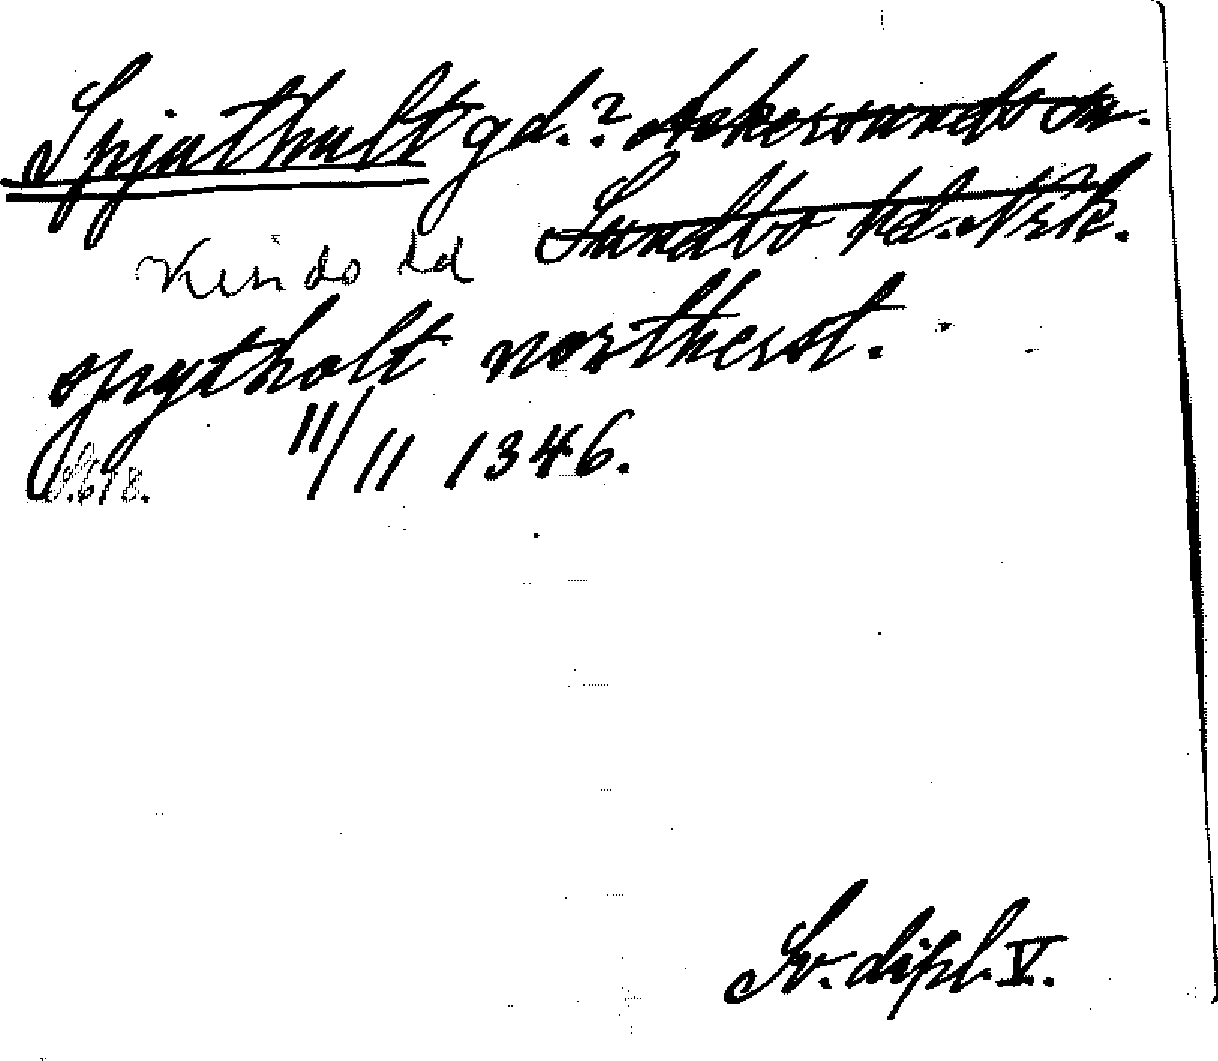 Spjuthult gd.? Askersunds sn.
Sundbo hd. Nrk.
Kinds hd
spytholt northerst.
11/11 1346.
S. 678.
Sv. dipl. V.